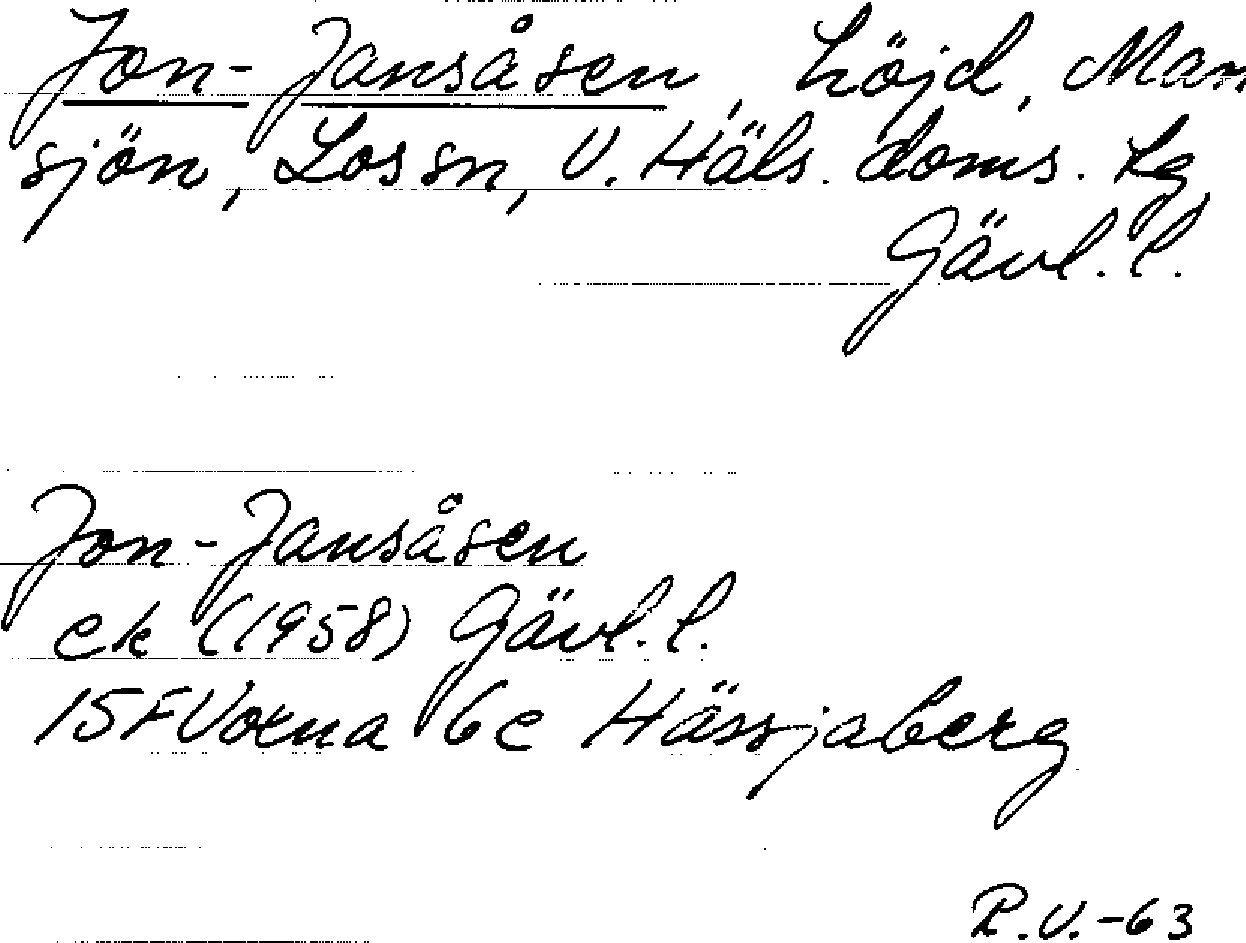 Jon-Jansåsen, höjd, Man
sjön, Lossn, V. Häls. doms. Lg
Gävl. l.
Jon-Jansåsen
ek (1958) Gävl. l.
15F Voxna 6e Hässjaberg
R.V.-63